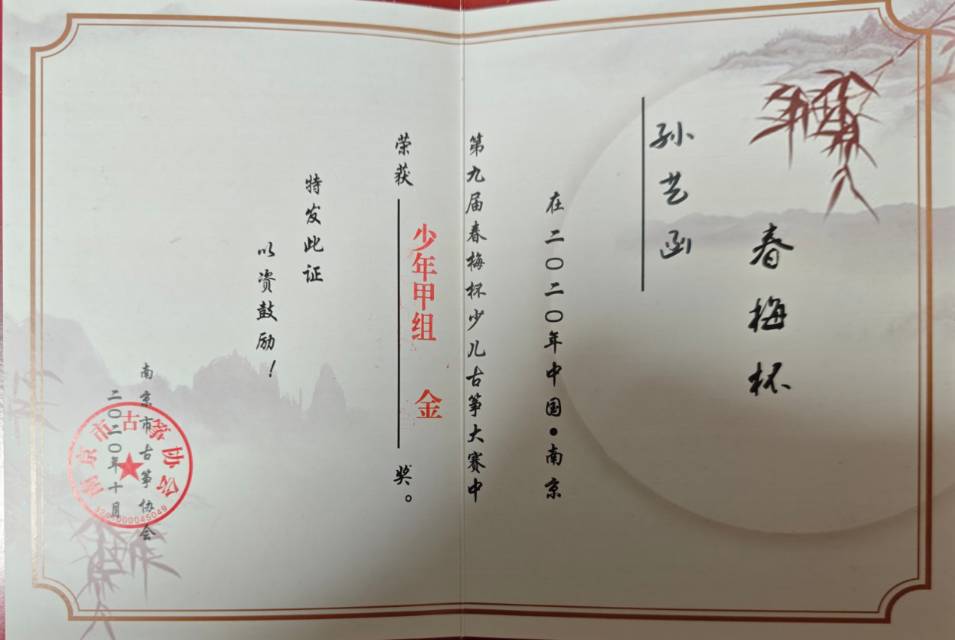 春梅杯
孙艺函
在二〇二〇年中国•南京
第九届春梅杯少儿古筝大赛中
荣获 少年甲组 金 奖。
特发此证
以资鼓励！
南京市古筝协会
二〇二〇年十月
南京市古筝协会